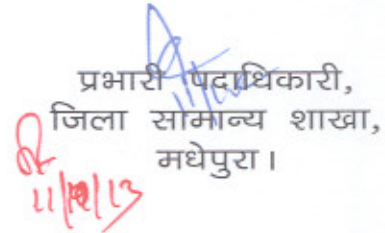 प्रभारी पदाधिकारी,
जिला सामान्य शाखा,
मधेपुरा।